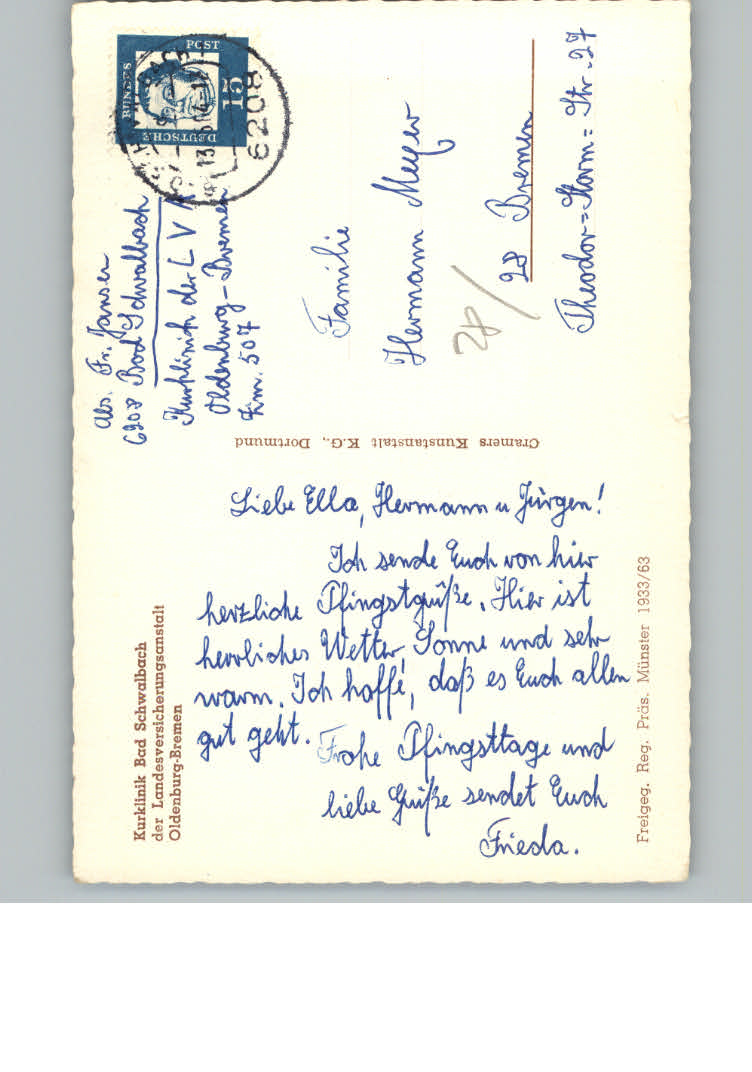 Kurklinik Bad Schwalbach
der Landesversicherungsanstalt
Oldenburg-Bremen
Liebe Ella, Hermann u Jürgen!
Ich sende Euch von hier
herzliche Pfingstgrüße. Hier ist
herrliches Wetter, Sonne und sehr
warm. Ich hoffe, daß es Euch allen
gut geht.
Frohe Pfingsttage und
liebe Grüße sendet Euch
Frieda.
Freigeg. Reg. Präs. Münster 1933/63
Cramers Kunstanstalt K.G., Dortmund
Abs. Fr. Jansen
6208 Bad Schwalbach
Kurklinik der L V A
Oldenburg-Bremen
Zm. 507
DEUTSCHE BUNDESPOST
15
6208
Familie
Hermann Meyer
28 Bremen
Theodor=Storm=Str. 27
28/